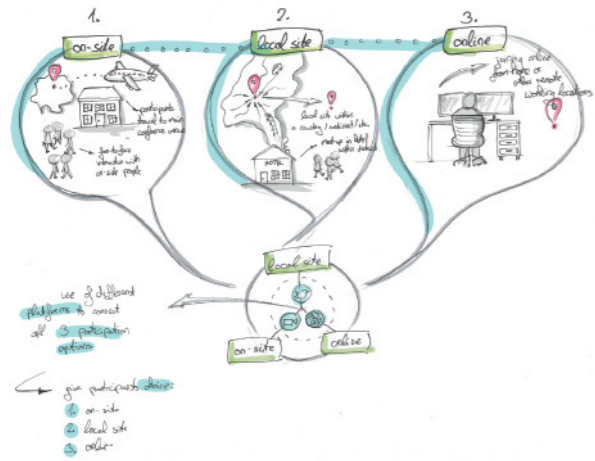 1.
on-site
participants
travel to main
conference venue
face-to-face
interaction with
on-side people
2.
local site
local site within
a country /
meet-up in hotel
HOTEL
3.
online
joining online
from home or
other remote
working locations
local site
on-site
online
use of different
platforms to connect
all 3 participation
options
give participants choice:
1. on-site
2. local site
3. online